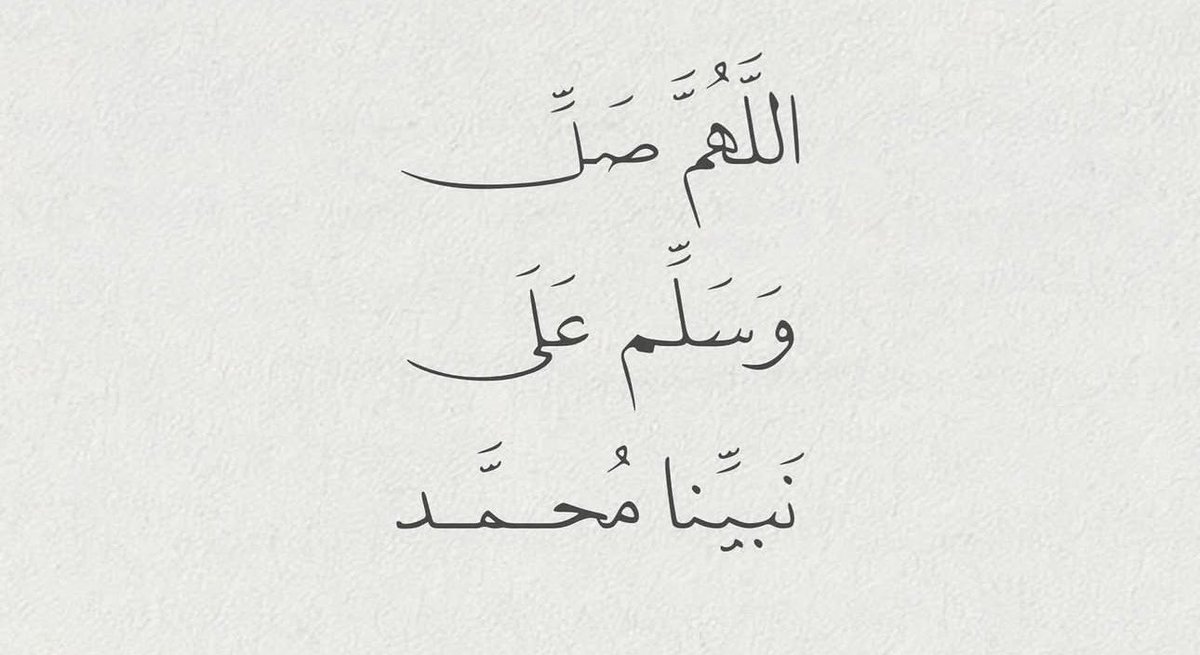 اللَّهُمَّ صَلِّ
وَسَلِّم عَلَى
نَبيِّنا مُحمَّد